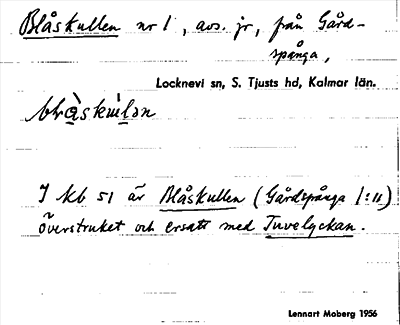 Blåskullen nr 1, avs. jr, från Gård-
spånga,
Locknevi sn, S. Tjusts hd, Kalmar län.
I kb 51 är Blåskullen (Gårdspånga 1:11)
överstruket och ersatt med Tuvelyckan.
Lennart Moberg 1956